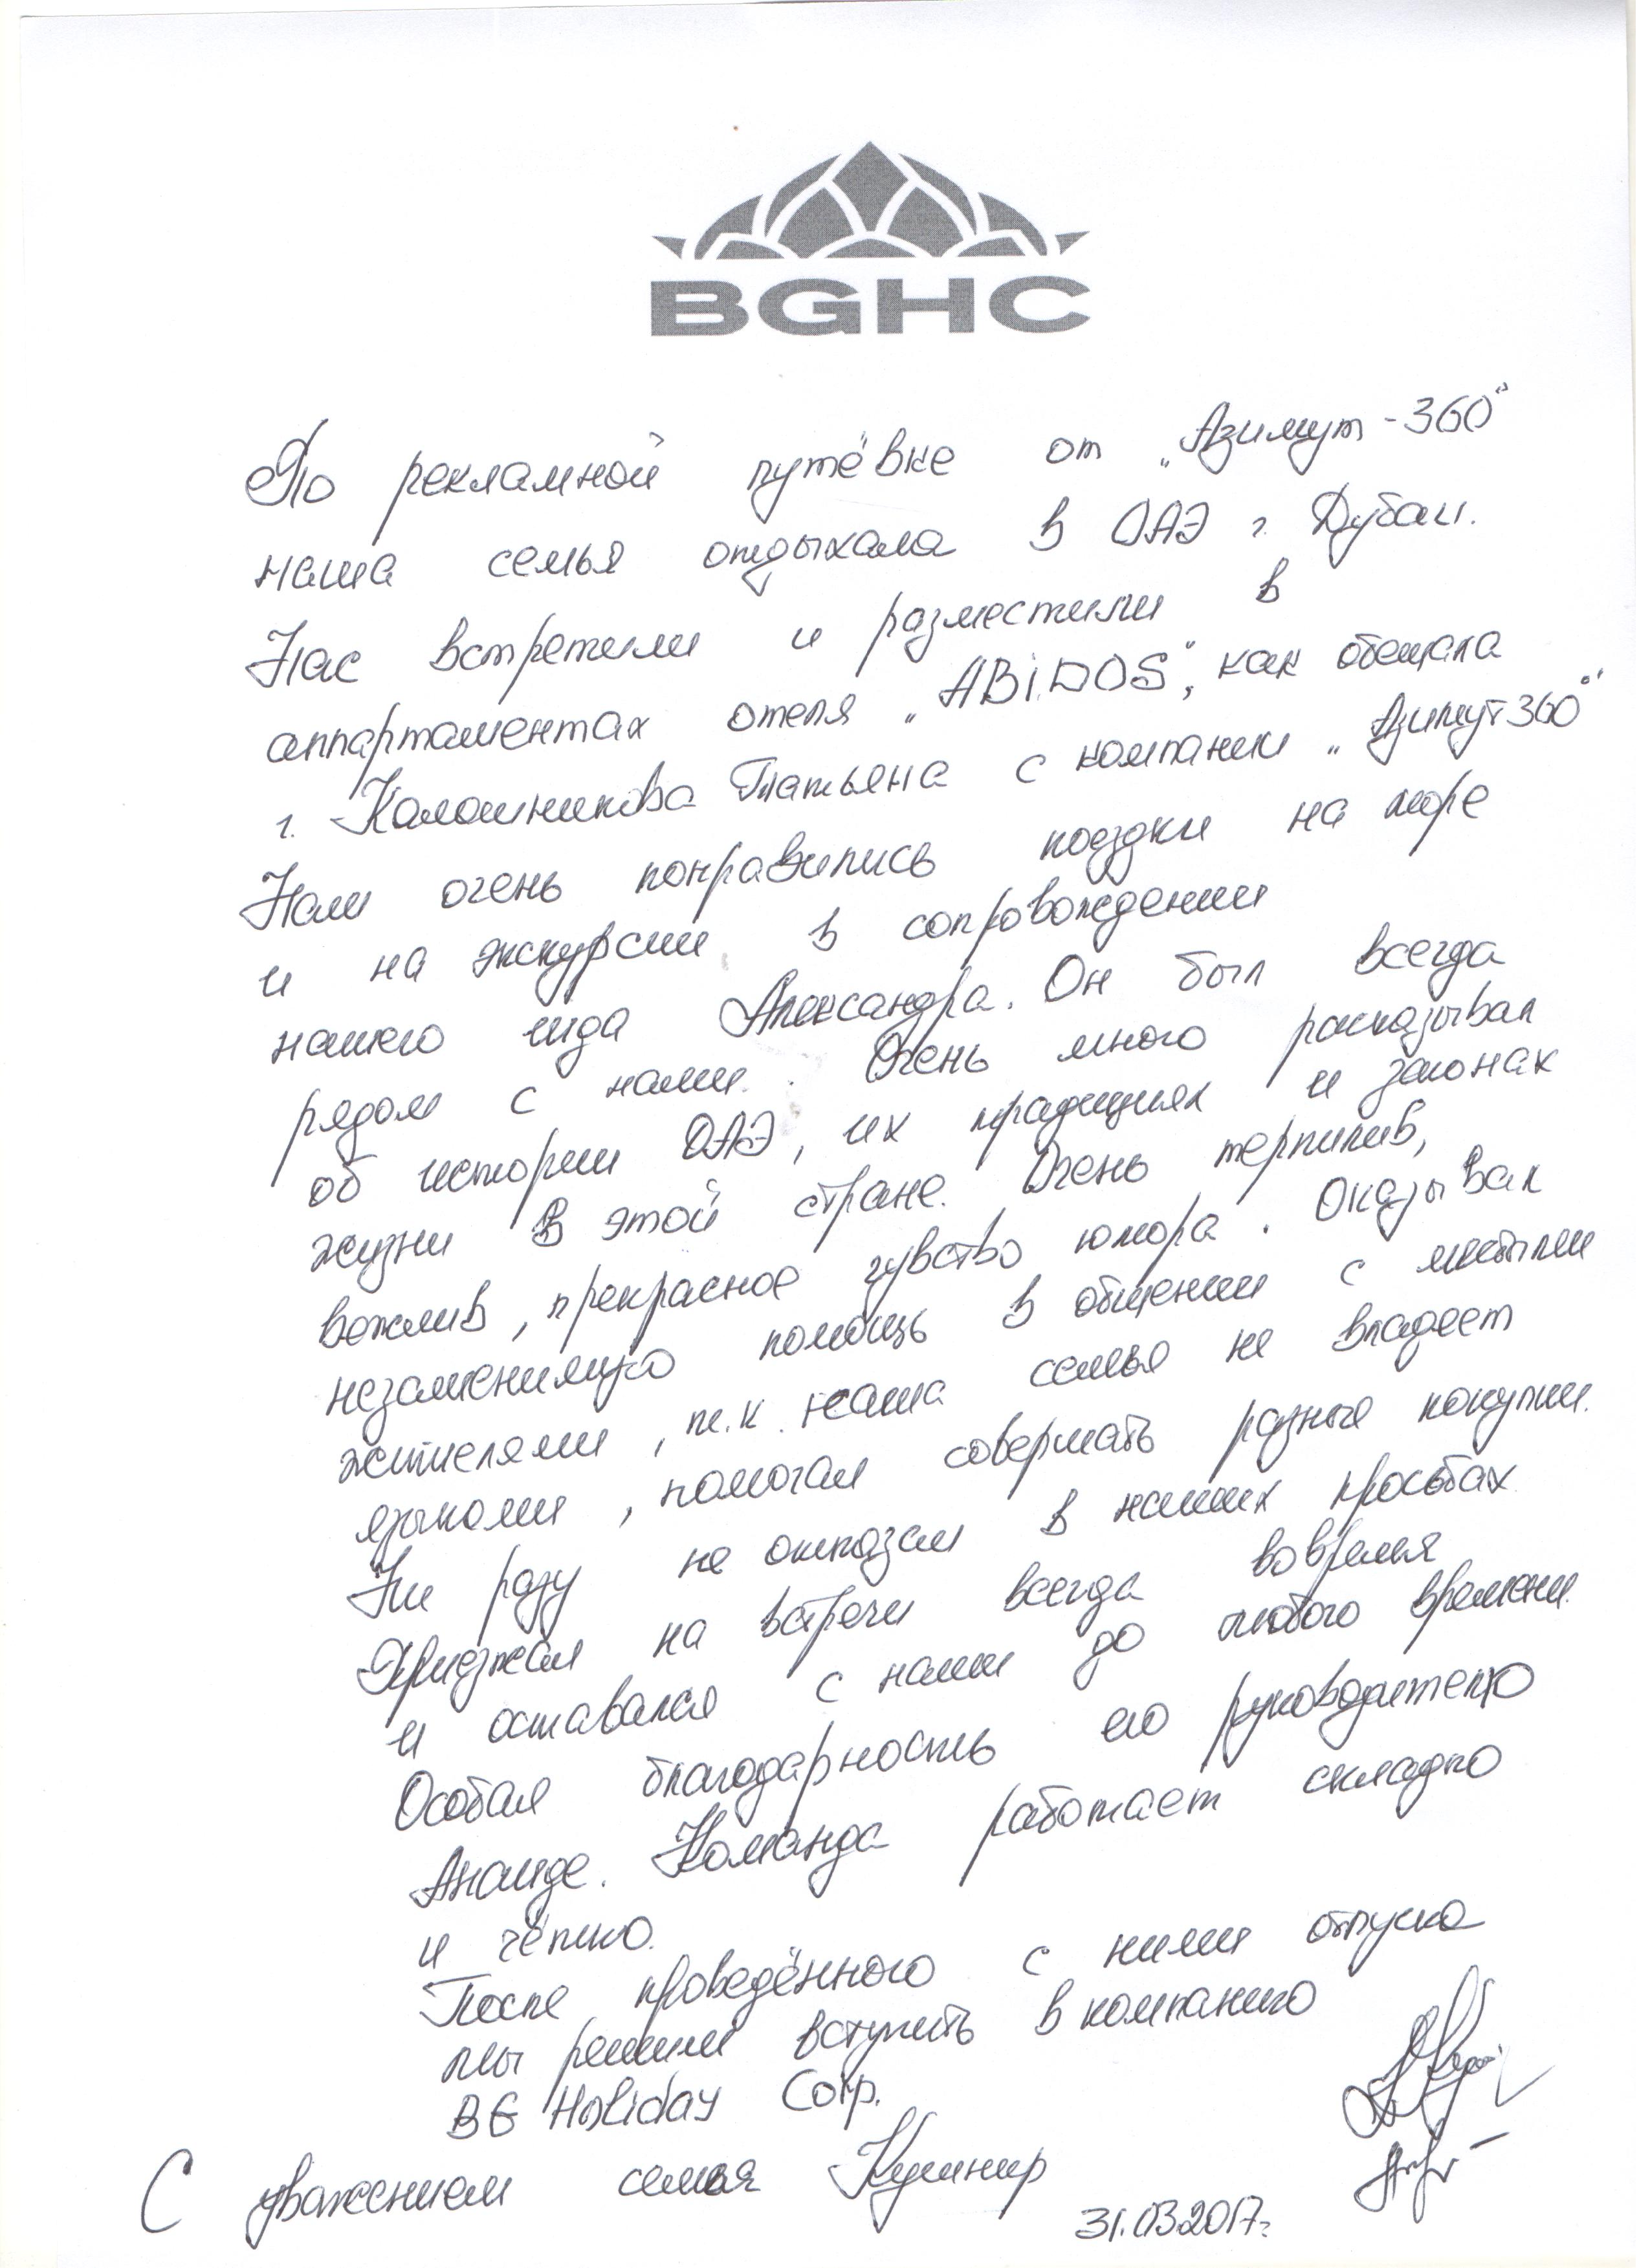 BGHC
По рекламной путёвке от „Азимут-360"
наша семья отдыхала в ОАЭ г. Дубаи.
Нас встретили и разместили в
аппартаментах отеля „ABiDOS", как обещала
г. Калашникова Татьяна с компании „Азимут 360"
Нам очень понравились поездки на море
и на экскурсии в сопровождении
нашего гида Александра. Он был всегда
рядом с нами. Очень много рассказывал
об истории ОАЭ, их традициях и законах
жизни в этой стране. Очень терпилив,
вежлив, прекрасное чувство юмора. Оказывал
незаменимую помощь в общении с местными
жителями, т.к. наша семья не владеет
языками, помогал совершать разные покупки.
Ни разу не отказал в наших просьбах
Приезжал на встречи всегда вовремя
и оставался с нами до любого времени.
Особая благодарность его руководителю
Анаиде. Команда работает складно
и чётко.
После проведённого с ними отпуска
мы решили вступить в компанию
BG Holiday Corp.
С уважением семья Кушнир
31.03.2017г.